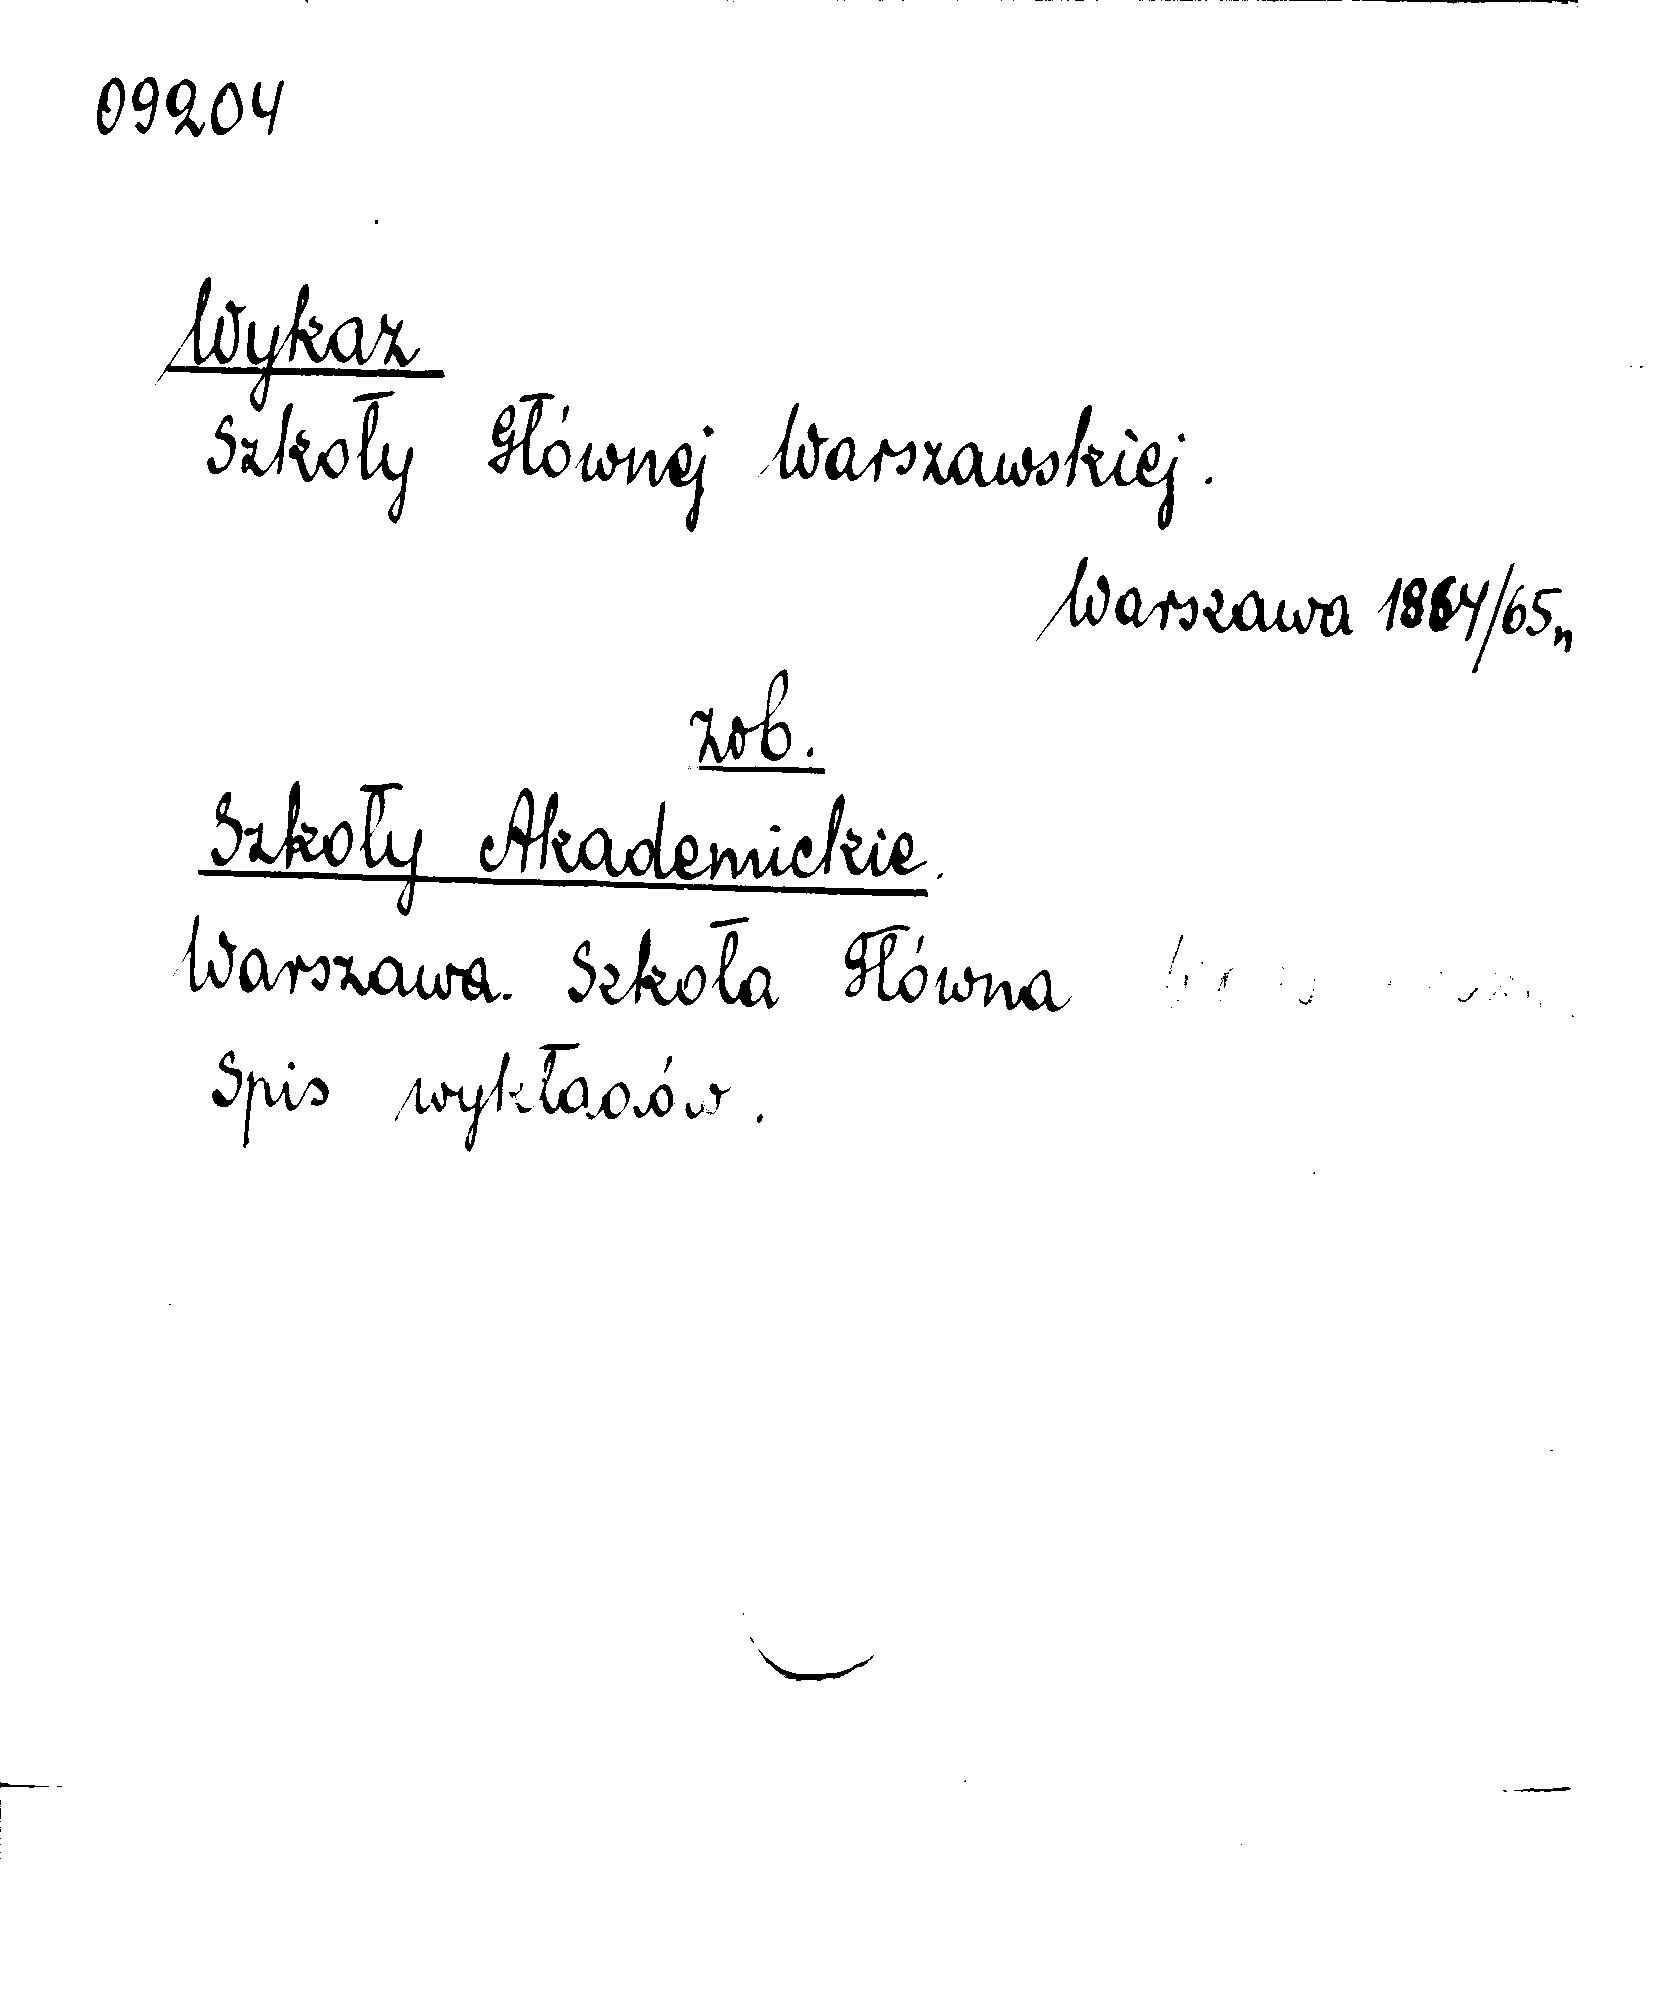 09204
Wykaz
Szkoły Głównej Warszawskiej.
Warszawa 1864/65„
zob.
Szkoły Akademickie.
Warszawa. Szkoła Główna
Spis wykładów.